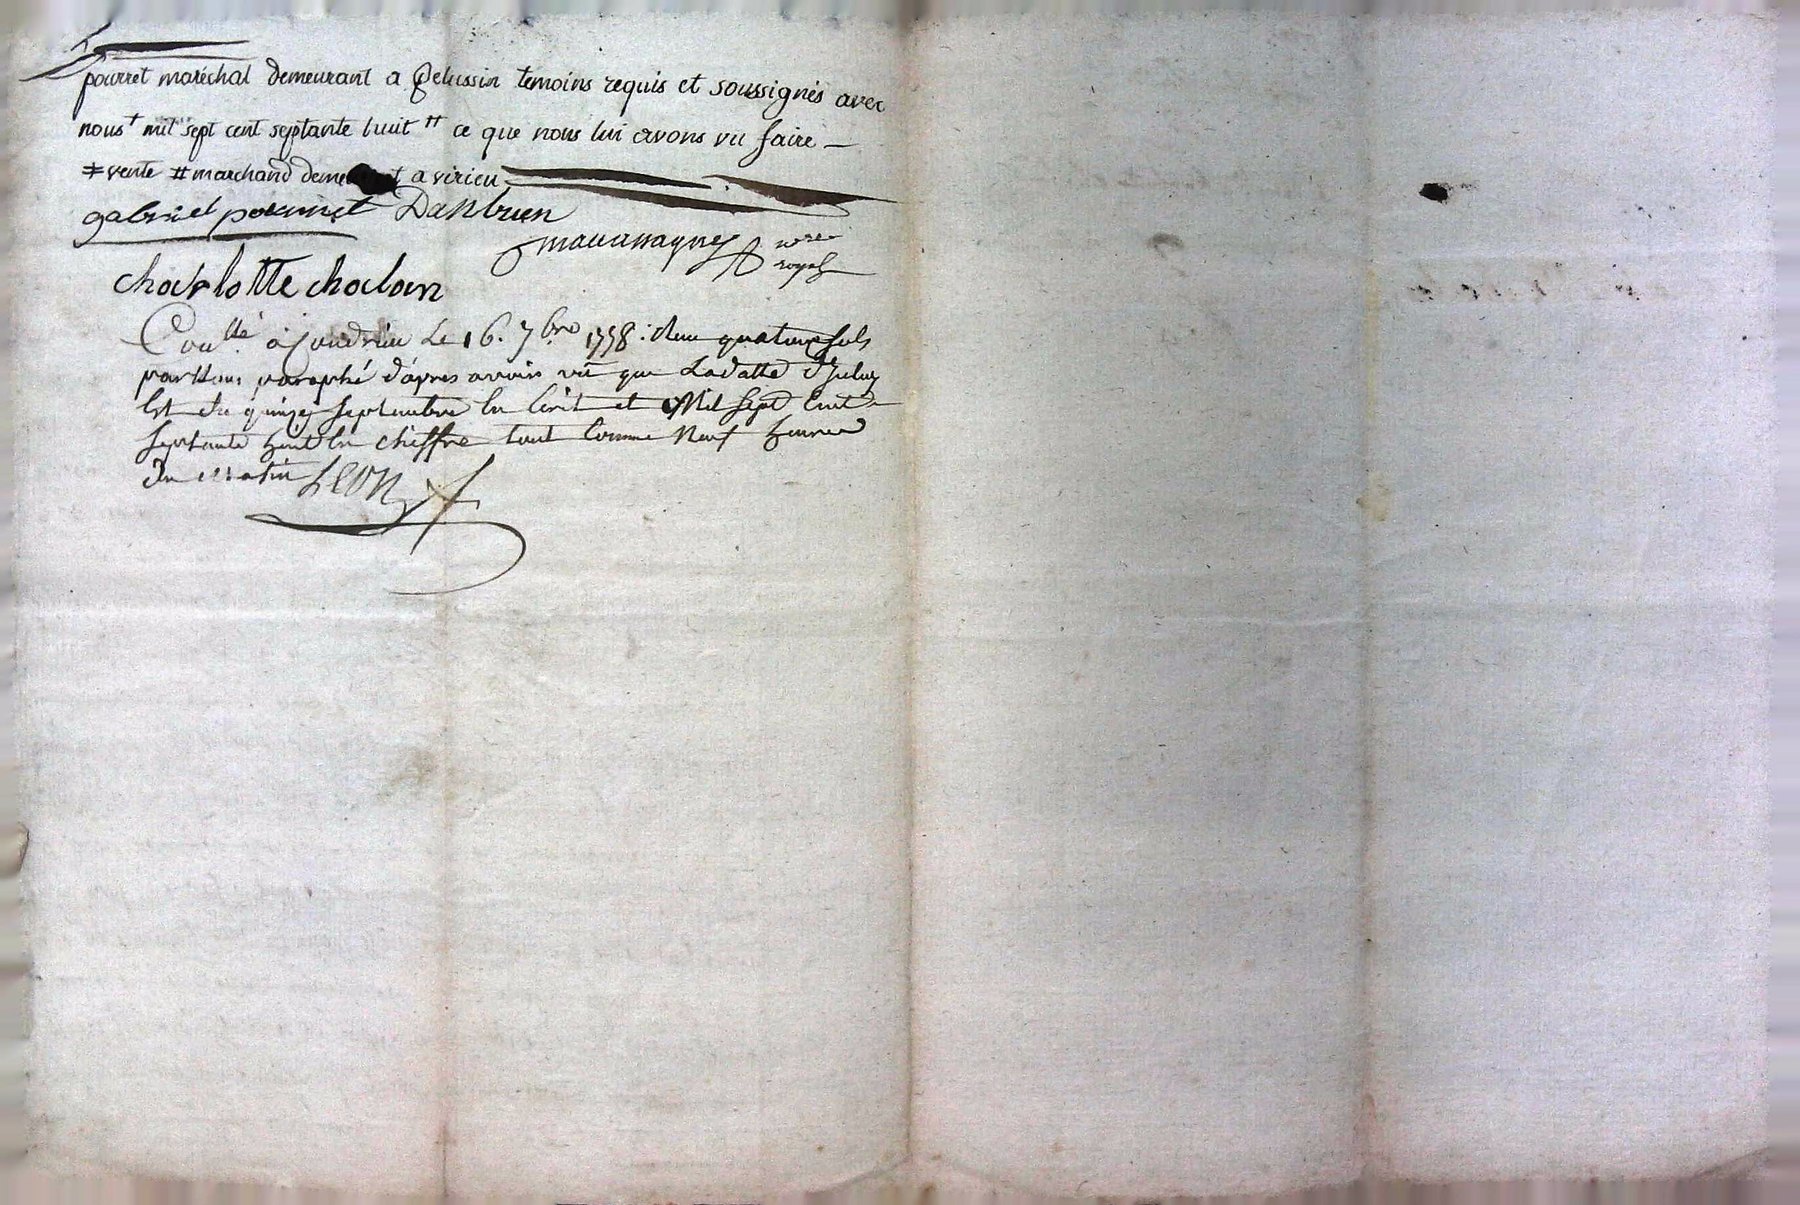 pourret maréchal demeurant a Pelussin temoins requis et soussignés avec
nous + mil sept cent septante huit ++ ce que nous lui avons vu faire —
≠ vente # marchand demeurant a virieu
gabriel pourret
royal
charlotte chalain
à Condrieu Le 16. 7bre 1778: Reçu quatorze sols
paraphé d'apres avoir vû que La datte
Est du quinze septembre En Ecrit et Mil Sept Cent
septante huit En chiffre tout comme Neuf heures
Du matin LEON